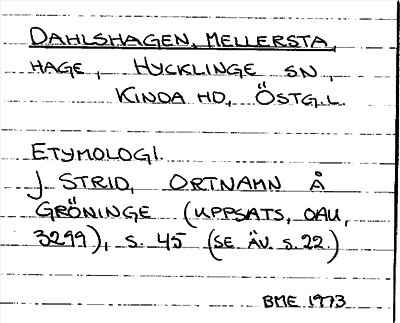 DAHLSHAGEN, MELLERSTA,
HAGE, HYCKLINGE SN,
KINDA HD, ÖSTG.L.
ETYMOLOGI.
J STRID, ORTNAMN Å
GRÖNINGE (UPPSATS, OAU,
3299), S. 45 (SE ÄV. S.22.)
BME 1973